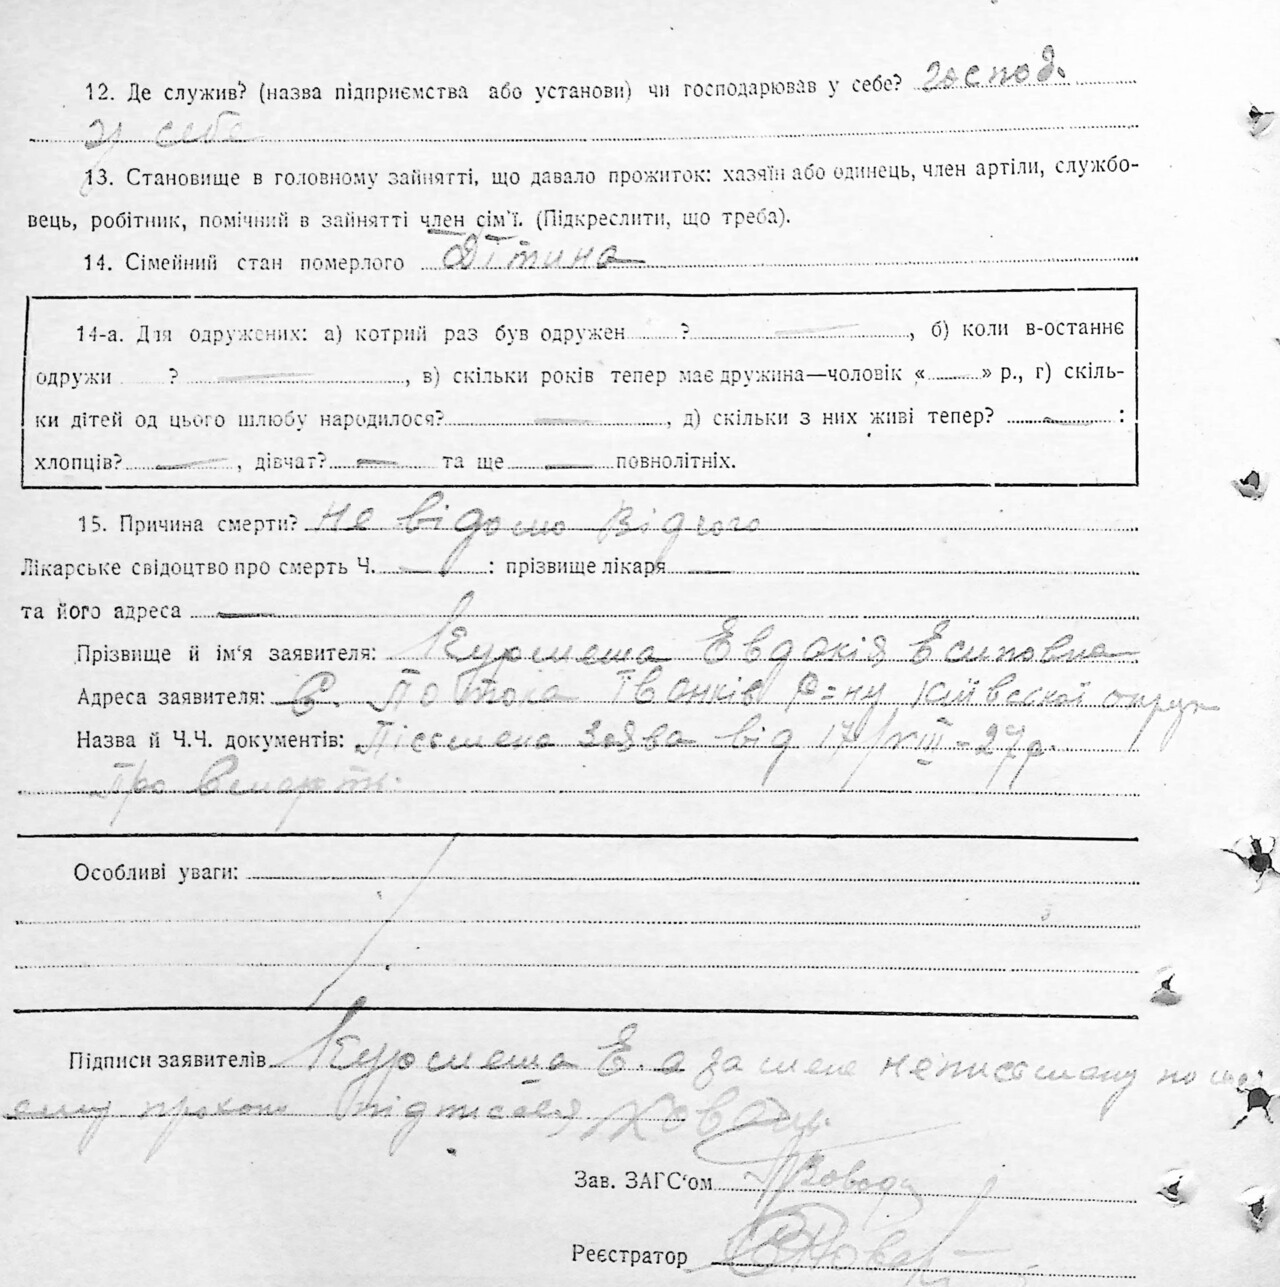 12. Де служив? (назва підприємства або установи) чи господарював у себе? господ.
у себе
13. Становище в головному зайнятті, що давало прожиток: хазяїн або одинець, член артіли, службо-
вець, робітник, помічний в зайнятті член сім'ї. (Підкреслити, що треба).
14. Сімейний стан померлого Дітина
14-а. Для одружених: а) котрий раз був одружен ? , б) коли в-останнє
одружи ? , в) скільки років тепер має дружина—чоловік « » р., г) скіль-
ки дітей од цього шлюбу народилося? , д) скільки з них живі тепер? :
хлопців? , дівчат? та ще повнолітніх.
15. Причина смерти? Не відомо від чого
Лікарське свідоцтво про смерть Ч. : прізвище лікаря
та його адреса
Прізвище й ім'я заявителя: Евдокія Есиповна
Адреса заявителя: С. Потока Іванків р=ну Київської округи
Назва й Ч.Ч. документів: Пісьмена заява від 17/VIII-27р.
про смерть.
Особливі уваги:
Підписи заявителів Е. а за
підписався
Зав. ЗАГС'ом
Реєстратор